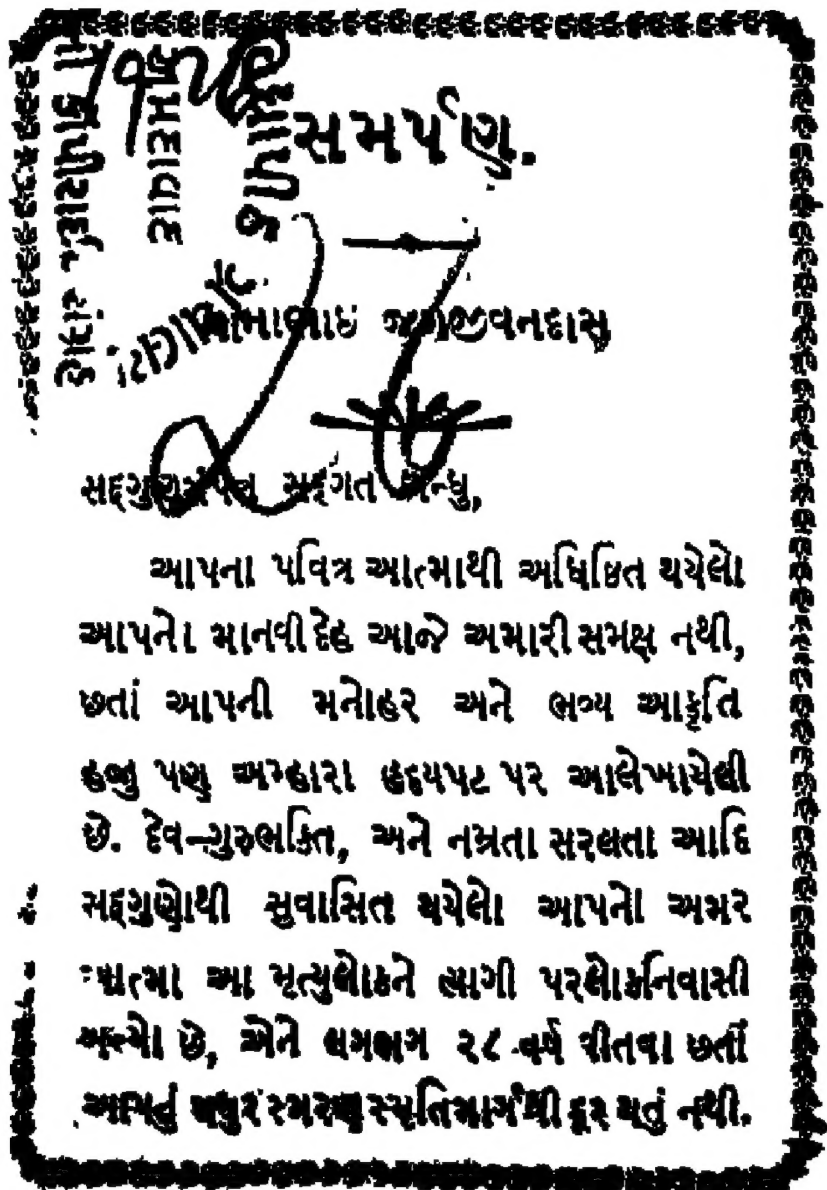 સમર્પણ.
જગજીવનદાસ
સદ્દગુણસંપન્ન સદ્દગત બન્ધુ,
આપના પવિત્ર આત્માથી અધિષ્ઠિત થયેલો
આપનો માનવી દેહ આજે અમારી સમક્ષ નથી,
છતાં આપની મનોહર અને ભવ્ય આકૃતિ
હજુ પણ અમ્હારા હૃદયપટ પર આલેખાયેલી
છે. દેવ-ગુરુભક્તિ, અને નમ્રતા સરલતા આદિ
સદ્દગુણોથી સુવાસિત થયેલો આપનો અમર
આત્મા આ મૃત્યુલોકને ત્યાગી પરલોકનિવાસી
બન્યો છે, એને લગભગ ૨૮ વર્ષ વીતવા છતાં
આપનું મધુર સ્મરણ સ્મૃતિમાર્ગથી દૂર થતું નથી.
વિદ્યાપીઠ
અમદાવાદ
કોપીરાઈટ સંગ્રહ
27